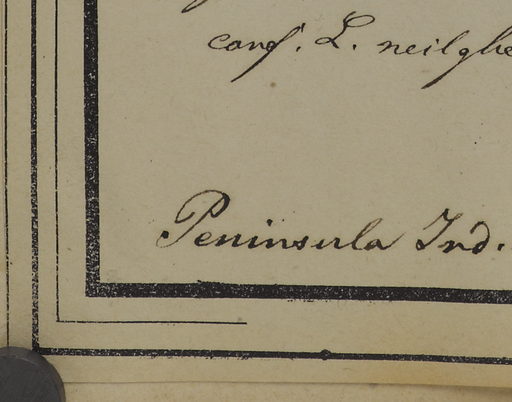 conf. L. neilghe
Peninsula Ind.